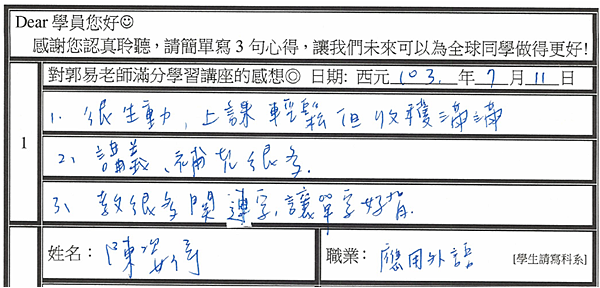 Dear 學員您好☺
感謝您認真聆聽，請簡單寫 3 句心得，讓我們未來可以為全球同學做得更好!
對郭易老師滿分學習講座的感想◎ 日期: 西元 103. 年 7 月 11 日
1. 很生動，上課輕鬆但收穫滿滿
1
2. 講義、補充很多.
3. 教很多関連字，讓單字好背.
姓名： 陳姿 職業： 應用外語 [學生請寫科系]